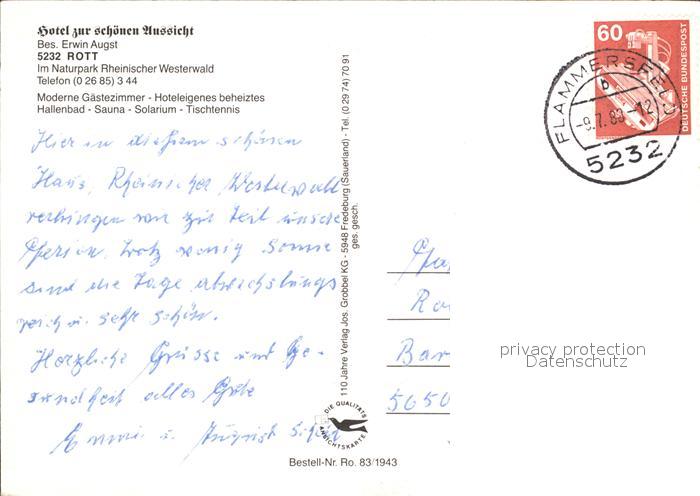 Hotel zur schönen Aussicht
Bes. Erwin Augst
5232 ROTT
Im Naturpark Rheinischer Westerwald
Telefon (0 26 85) 3 44
Moderne Gästezimmer - Hoteleigenes beheiztes
Hallenbad - Sauna - Solarium - Tischtennis
Hier in diesem schönen
Haus, Rheinischer Westerwald
verbringen wir zur Zeit unsere
Ferien, trotz wenig Sonne
sind die Tage abwechslungs
reich u. sehr schön.
Herzliche Grüsse und Ge-
sundheit alles Gute
Emmi u. August
110 Jahre Verlag Jos. Grobbel KG - 5948 Fredeburg (Sauerland) - Tel. (0 29 74) 70 91
ges. gesch.
DIE QUALITÄTS
ANSICHTSKARTE
Bestell-Nr. Ro. 83/1943
60
DEUTSCHE BUNDESPOST
FLAMMERSFELD
b
-9.7.83-12
5232
5650
privacy protection
Datenschutz